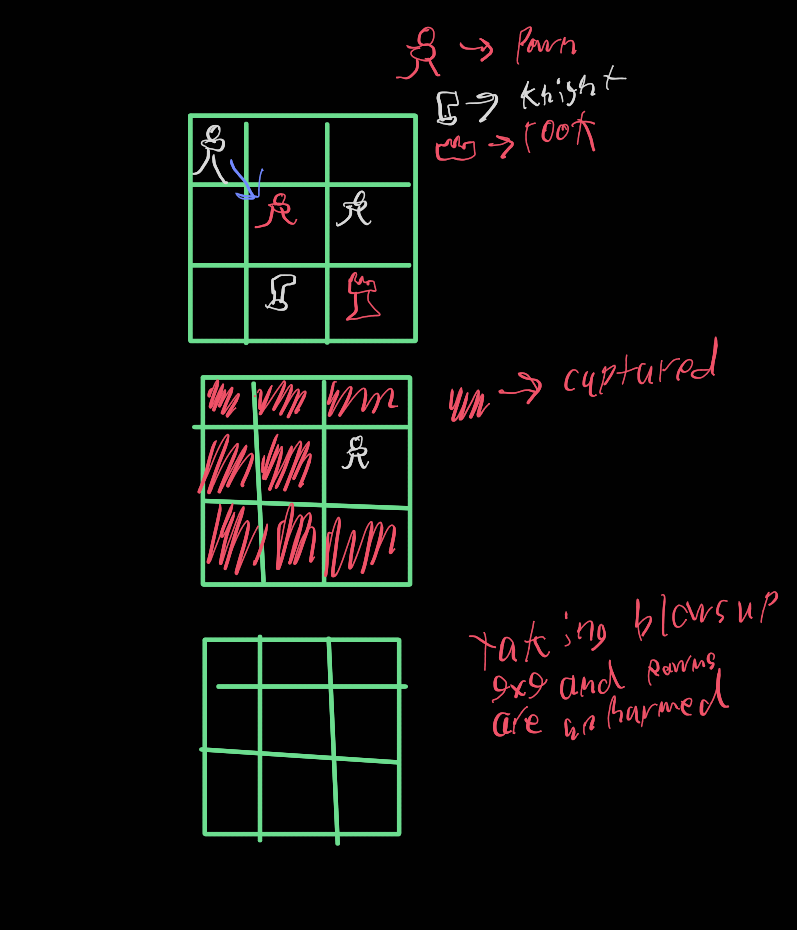 → Pawn
→ Knight
→ rook
→ captured
Taking blows up
9x9 and pawns
are unharmed